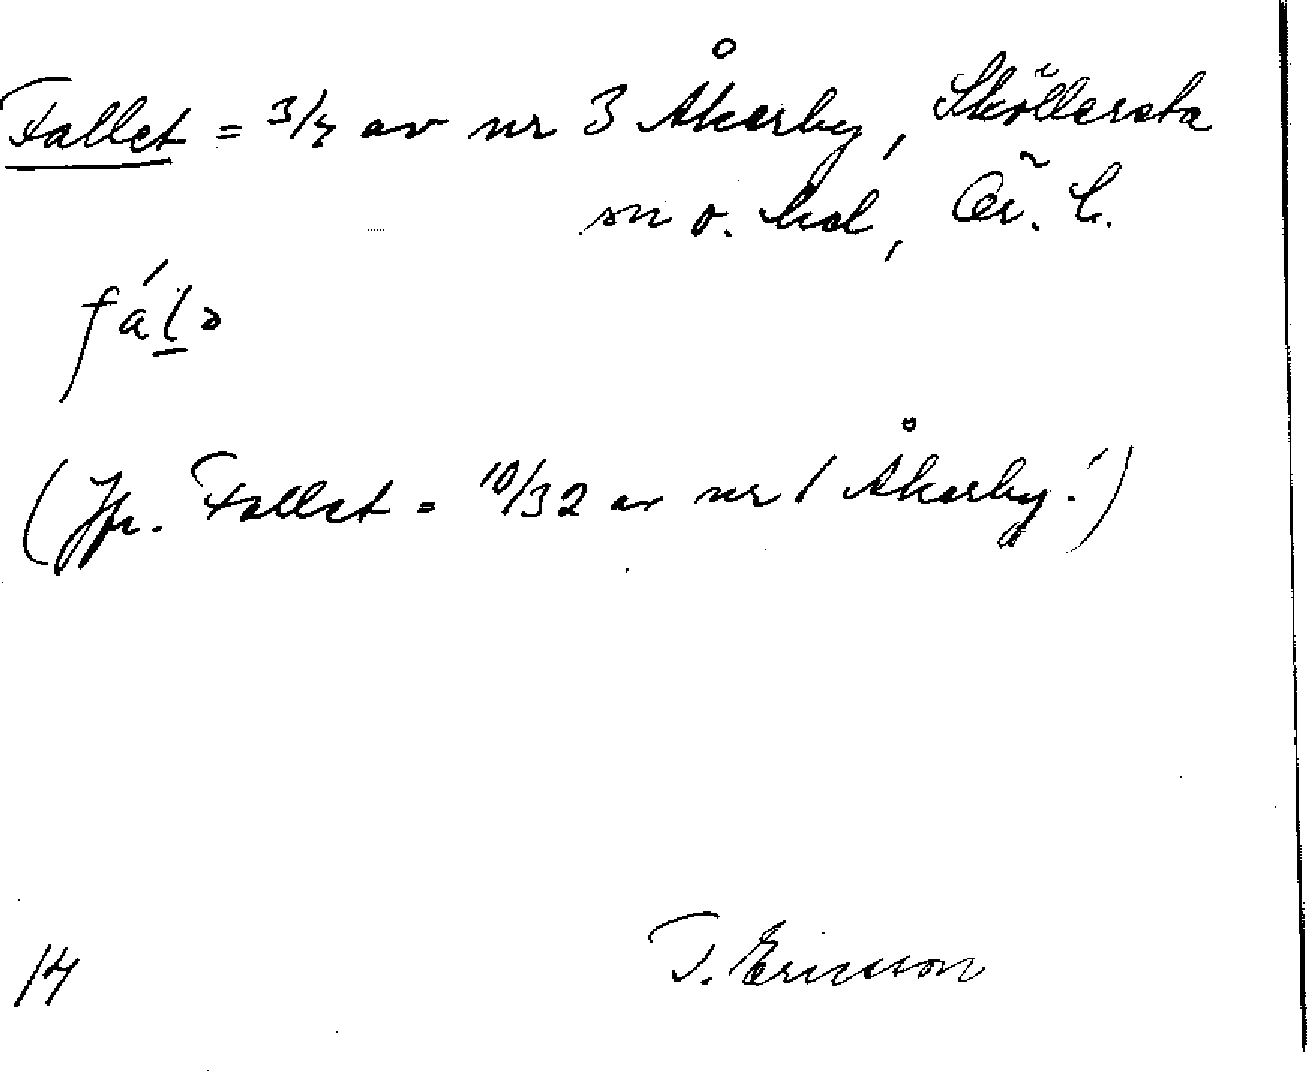 Fallet = 3/4 av nr 3 Åkerby, Sköllersta
sn o. hd, Ör. l.
fálə
(Jfr. Fallet = 10/32 av nr 1 Åkerby!)
T. Ericsson
14